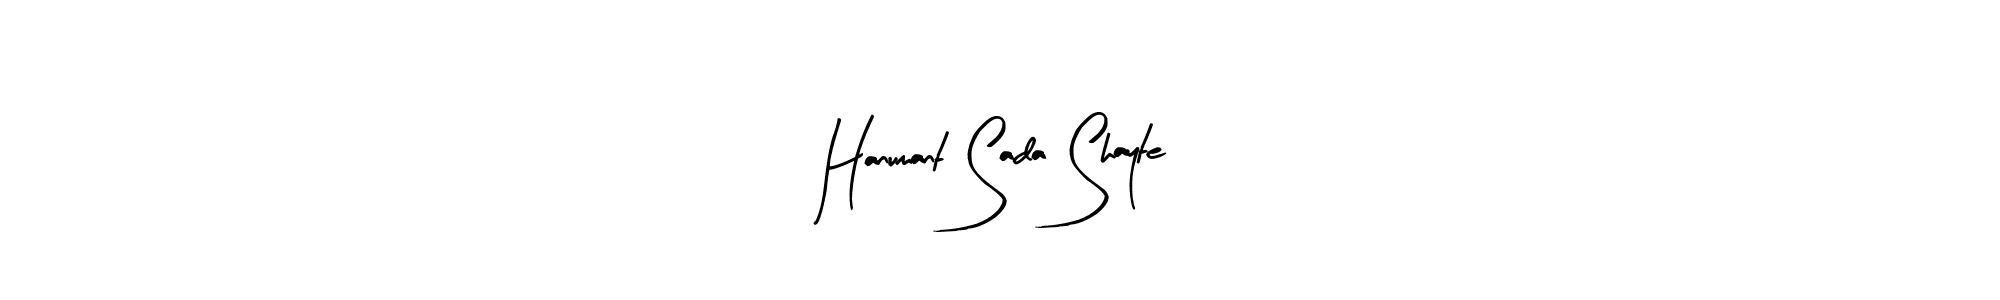 Hanumant Sada Shayte